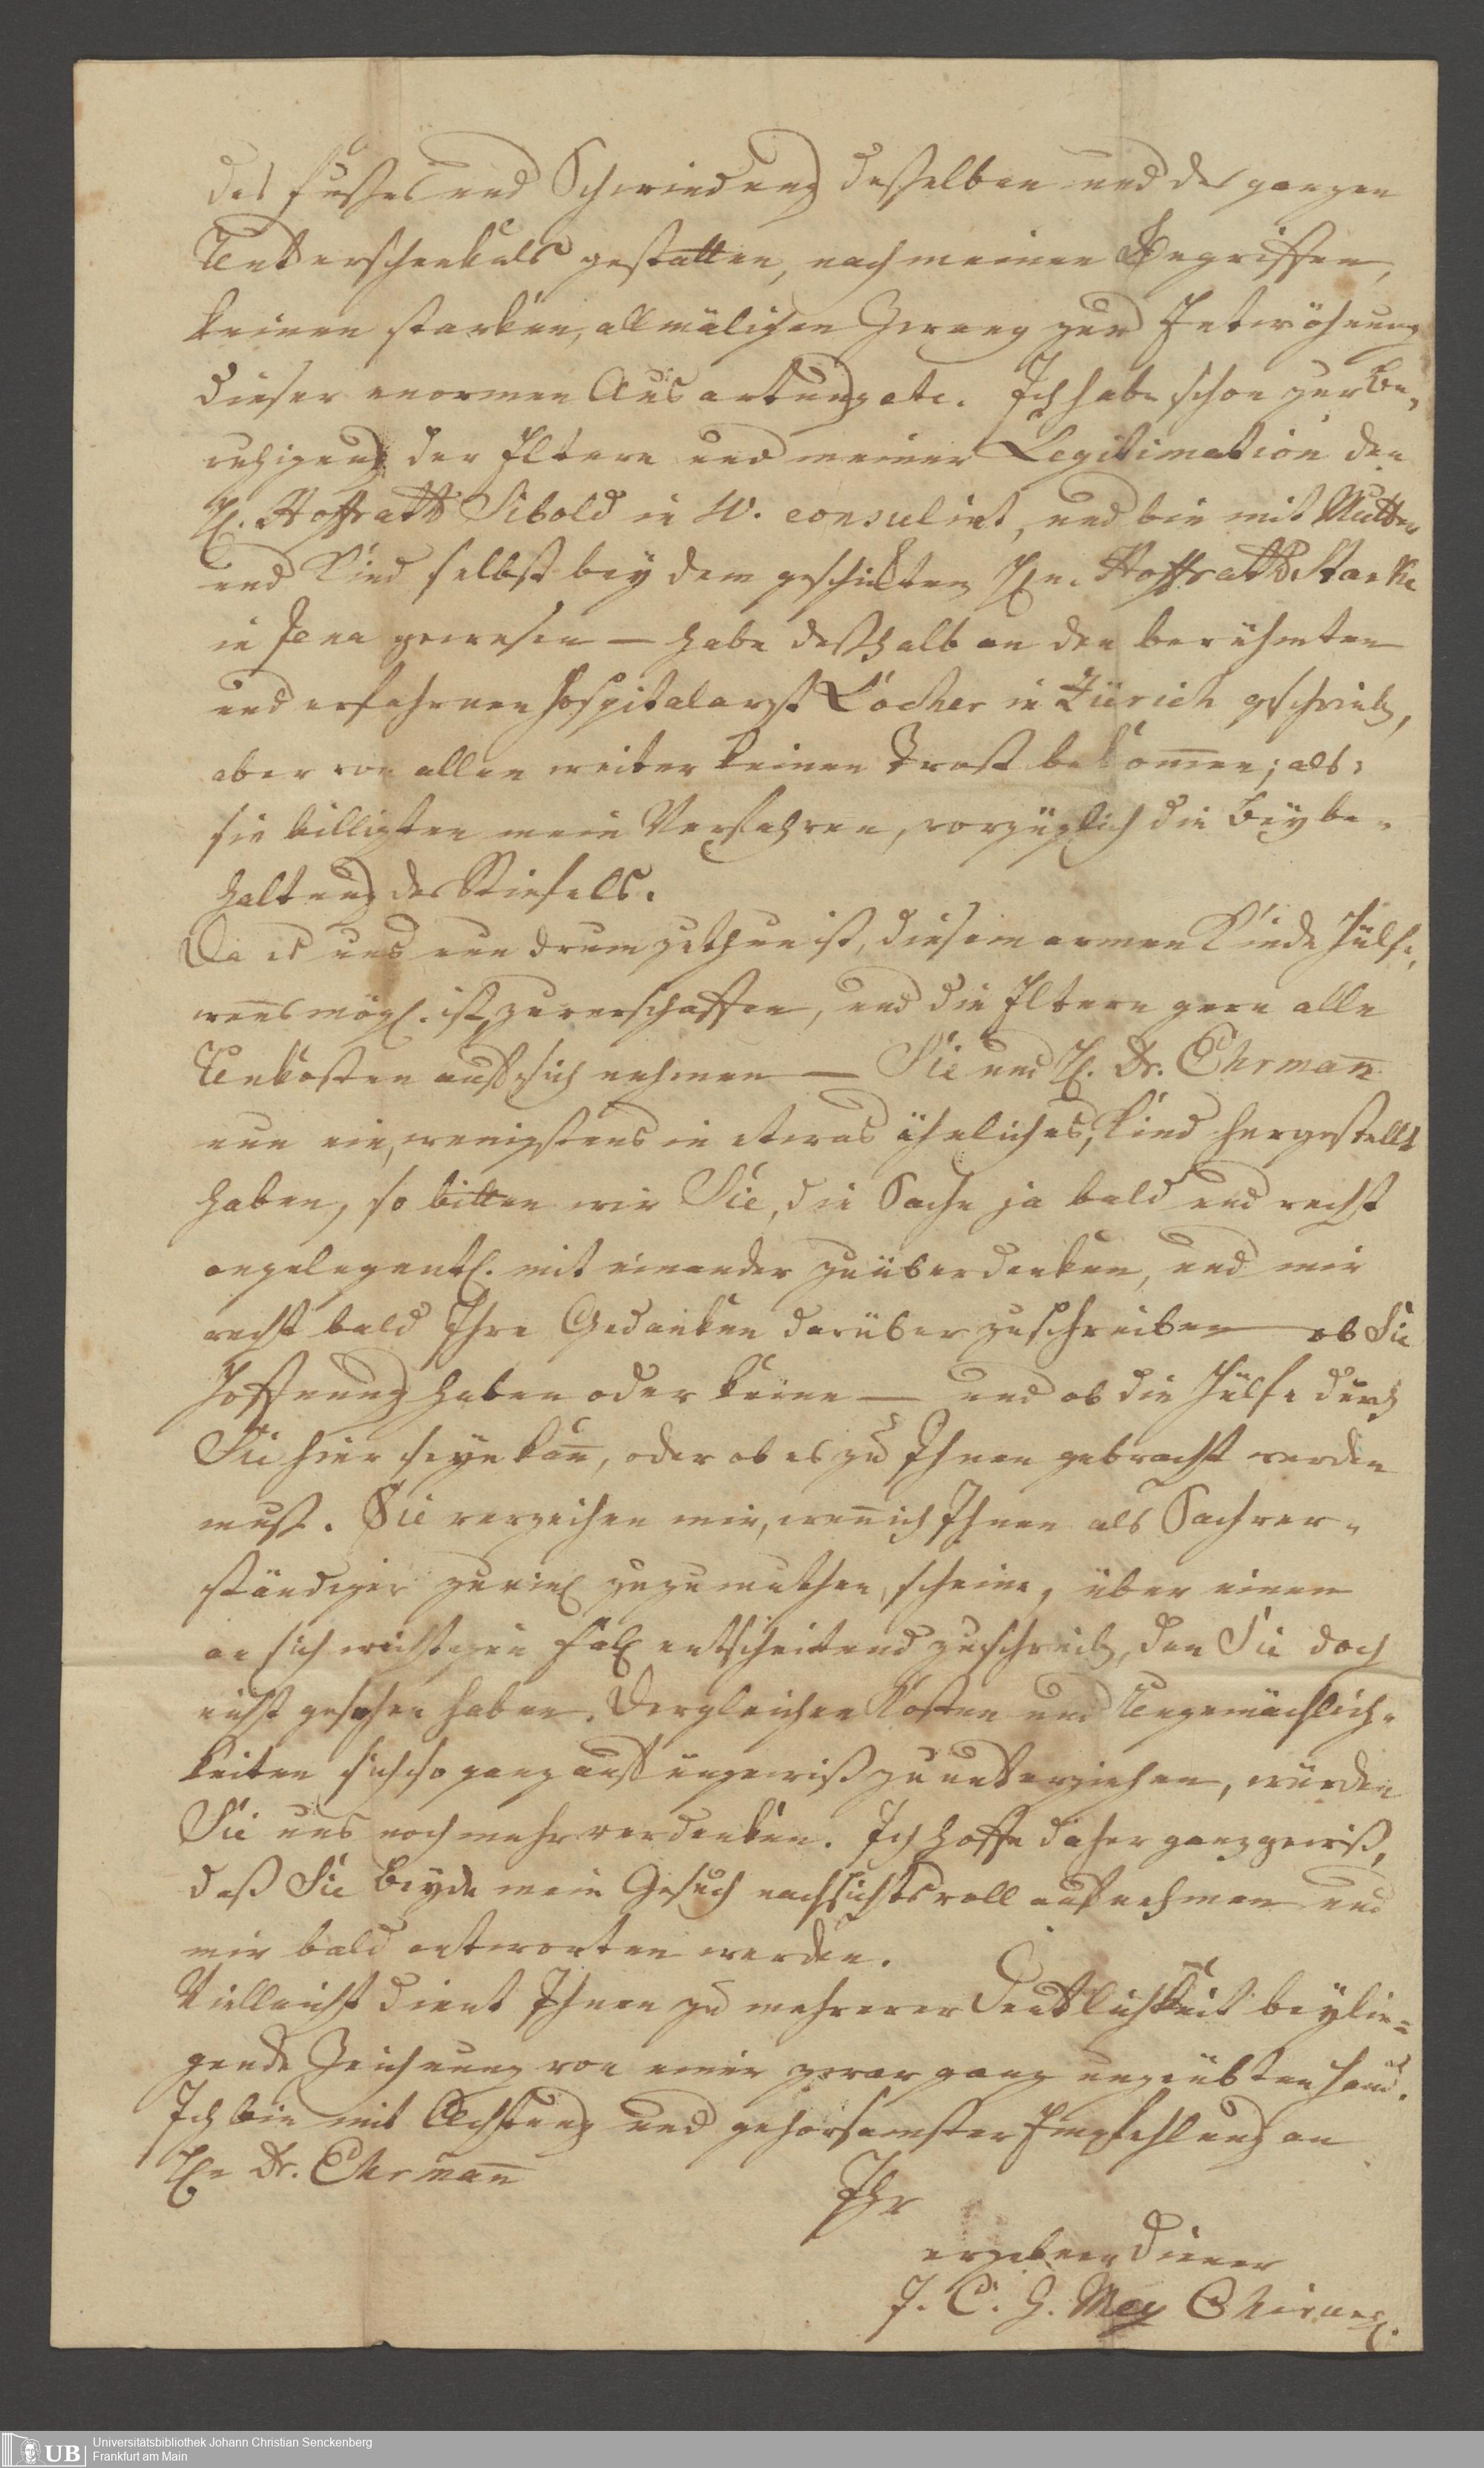 des Fußes und Schwindung deßelben und des ganzen
Unterschenkels gestatten, nach meinen Begriffen,
keinen starken, allmäligen Zwang zur Entwöhnung
dieser enormen Ausartung etc. Ich habe schon zur Be,
ruhigung der Eltern und meiner Legitimation den
H. Hoffrath Sibold in W. consulirt, und bin mit Mutter
und Kind selbst bey dem geschickten Hn. Hoffrath Starke
in Jena gewesen — habe deßhalb an den berühmten
und erfahrnen Hospitalarzt Locher in Zürich geschrieb,
aber von allen weiter keinen Trost bekom̄en; als:
sie billigten mein Verfahren, vorzüglich die Beybe-
haltung des Stiefels.
Da es uns nun drum zuthun ist, diesem armen Kinde Hülfe,
wen̄s mögl. ist, zu verschaffen, und die Eltern gern alle
Unkosten auf sich nehmen — Sie und H. Dr. Ehrman̄
nun ein, wenigstens in etwas ähnliches, Kind hergestellt
haben, so bitten wir Sie, die Sache ja bald und recht
angelegentl. mit einander zu überdenken, und mir
recht bald Ihre Gedanken darüber zuschreiben — ob Sie
Hoffnung haben oder keine — und ob die Hülfe durch
Sie hier seyn kan̄, oder ob es zu Ihnen gebracht werden
muß. Sie verzeihen mir, wen̄ ich Ihnen als Sachver-
ständiger zuviel zuzumuthen scheine, über einen
an sich wichtigen Fall entscheitend zuschreib, den Sie doch
nicht gesehen haben. Dergleichen Kosten und Ungemächlich-
keiten sich so ganz auf ungewiß zu unterziehen, würden
Sie uns noch mehr verdenken. Ich hoffe daher ganz gewiß,
daß Sie Beyde mein Gesuch nachsichtsvoll aufnehmen und
mir bald antworten werden.
Vielleicht dient Ihnen zu mehrerer Deutlichkeit beylie=
gende Zeichnung von einer zwar ganz ungeübten Hand.
Ich bin mit Achtung und gehorsamster Empfehlung an
Hn Dr. Ehrman̄
Ihr
ergebner Diener
J. C. G. Mey Chirurg.
UB
Universitätsbibliothek Johann Christian Senckenberg
Frankfurt am Main